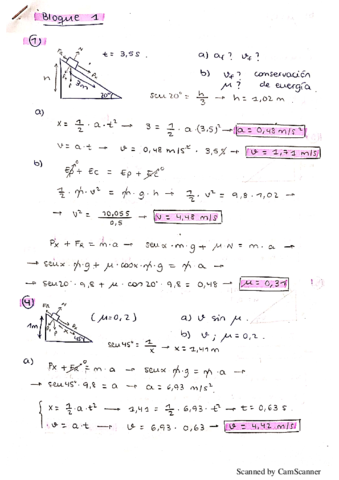 Bloque 1
①
t = 3,5 s
a) a? v_f?
b) v_f? conservación
μ? de energía
F_R
N
P_x
h
3m
20°
sen 20° = h/3 → h = 1,02 m
a)
x = 1/2 · a · t² → 3 = 1/2 · a · (3,5)² → a = 0,48 m/s²
v = a · t → v = 0,48 m/s² · 3,5 s → v = 1,71 m/s
b)
Ep⁰ + Ec = Ep + Ec⁰
1/2 · m · v² = m · g · h → 1/2 · v² = 9,8 · 1,02 →
→ v² = 10,055/0,5 → v = 4,48 m/s
Px + F_R = m · a → sen x · m · g + μ N = m · a →
→ sen x · m · g + μ · cos x · m · g = m · a →
→ sen 20° · 9,8 + μ · cos 20° · 9,8 = 0,48 → μ = 0,31
④
F_R
N
1m
45°
(μ = 0,2)
a) v sin μ.
b) v; μ = 0,2.
sen 45° = 1/x → x = 1,41 m
a)
Px + F_R⁰ = m · a → sen x · m · g = m · a →
→ sen 45° · 9,8 = a → a = 6,93 m/s²
x = 1/2 · a · t² → 1,41 = 1/2 · 6,93 · t² → t = 0,63 s
v = a · t → v = 6,93 · 0,63 → v = 4,42 m/s
Scanned by CamScanner